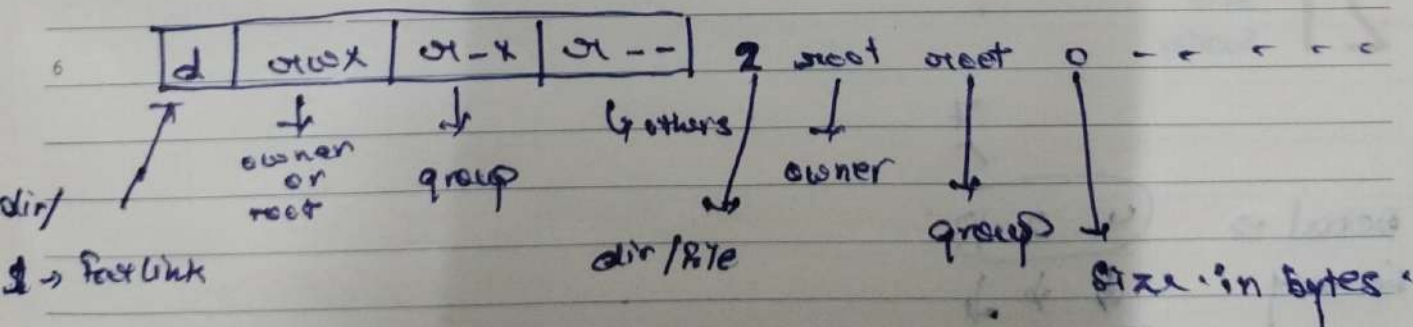 6 d rwx r-x r-- 2 root root 0 - - - - -
owner or root
group
others
owner
dir/
group
dir/file
size in bytes
→ link